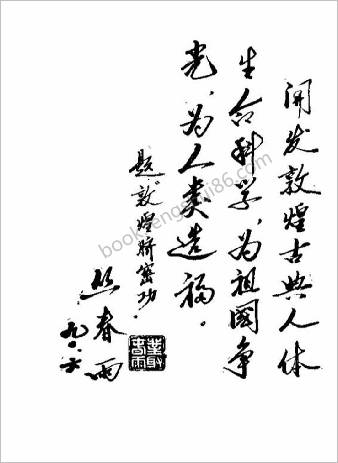 開发敦煌古典人体
生命科学,为祖國争
光,为人类造福。
题敦煌脐密功.
丛春雨
九〇.六